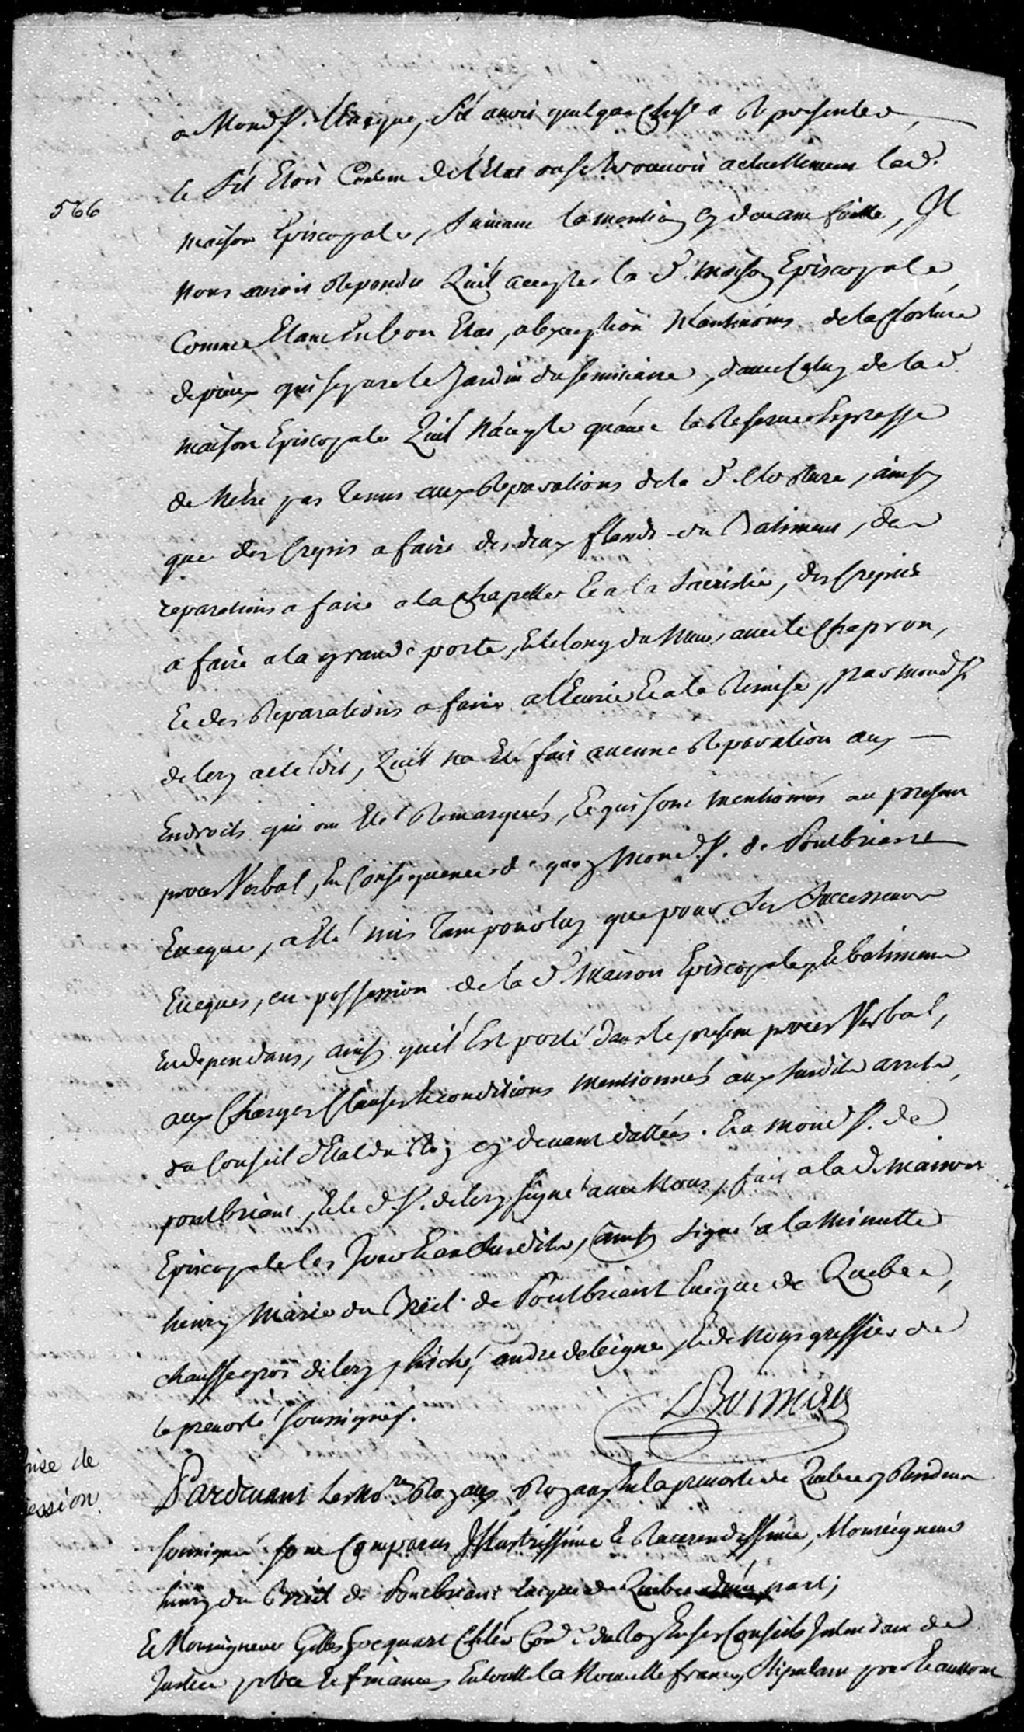 a Mond S.r Eveque, s'il avoit quelque chose a Representer,
et s'il Etoit Content de l'Etat ou se trouvoit actuellement lad.
566
maison Episcopale, suivant la mention cy devant faitte, Il
nous auroit Repondu Quil accepte la d.e maison Episcopale,
Comme Etant En bon Etat, a l'exception Neantmoins de la Cloture
de pieux qui separe le Jardin du seminaire, d'avec Celuy de la d.
maison Episcopale Quil n'accepte qu'avec la Reserve Expresse
de N'etre pas tenus aux Reparations de la d.e Clôture, ainsy
que des Crepis a faire des deux flancs du Batiment, des
reparations a faire a la chapelle Et a la Sacristie, des Crepis
a faire a la grande porte, Et le long du Mur, avec le Chapron,
Et des Reparations a faire a l'Ecurie Et a la Remise, par mond S.r
de lery a Eté dit, Quil n'a Eté fait aucune Reparation aux
Endroits qui ont Eté Remarqués, Et qui sont mentionnés au present
procés Verbal, En Consequence de quoy Mond. S.r de Pontbriant
Eveque, a Eté mis tant pour luy que pour ses Successeurs
Eveques, en possession de la d.e Maison Episcopale, Et batiment
En dependans, ainsy quil Est porté dans le present procés Verbal,
aux Charges Clauses Et conditions mentionnés aux susdits arrets,
du Conseil d'Etat du Roy cy devant dattés. Et a mond S.r de
pontbriant, Et le d. S.r de lery signé avec Nous, fait a la d. maison
Episcopale les Jour Et an susdits, ainsy signé a la Minutte
henry Marie du Breil de Pontbriant Eveque de Quebec,
chaussegros de lery, hiché, andre de leigne, Et de Nous greffier de
la prevosté soussignes.
Boisseau
rise de
ession
Pardevant les No.res Royaux, En la prevosté de Quebec y Residens
soussignés sont Comparus Illustrissime Et Reverendissime, Monseigneur
henry du Breil de Pontbriant Eveque de Quebec d'une part;
Et Monseigneur Gilles hocquart Ch.lier Con.er du Roy En ses Conseils Intendant de
Justice police Et finances En toutte la Nouvelle france, Stipulant pour Et au nom